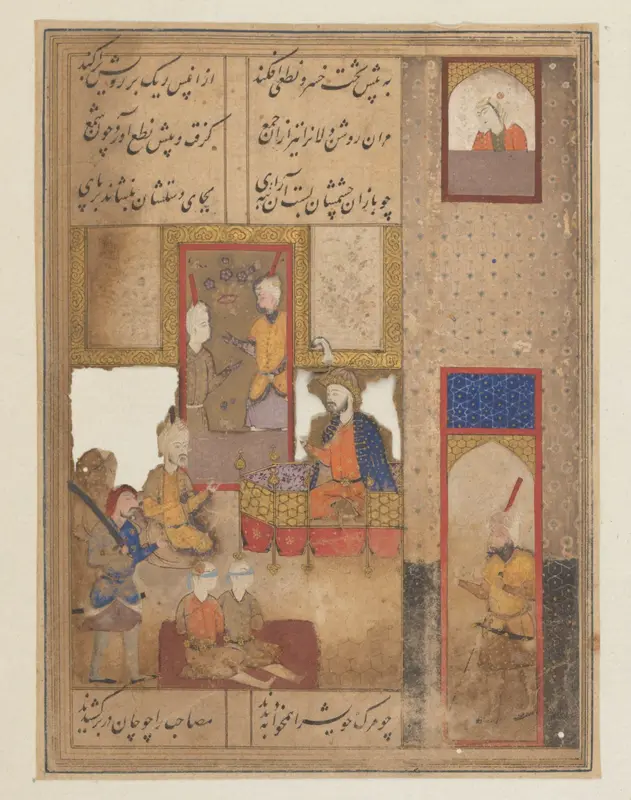 به پیش تخت خسرو نطع افکند از انپس ریک بر رویش پراکند
مران روشن دلانرا نیز ازان جمع گرفت و پیش نطع آورد چون شمع
چو بازان چشمشان بست آن رای بجای دستشان بنشاند بر پای
چو مرک خویش را همخوابه دیدند مصاحب را چو جان در بر کشیدند